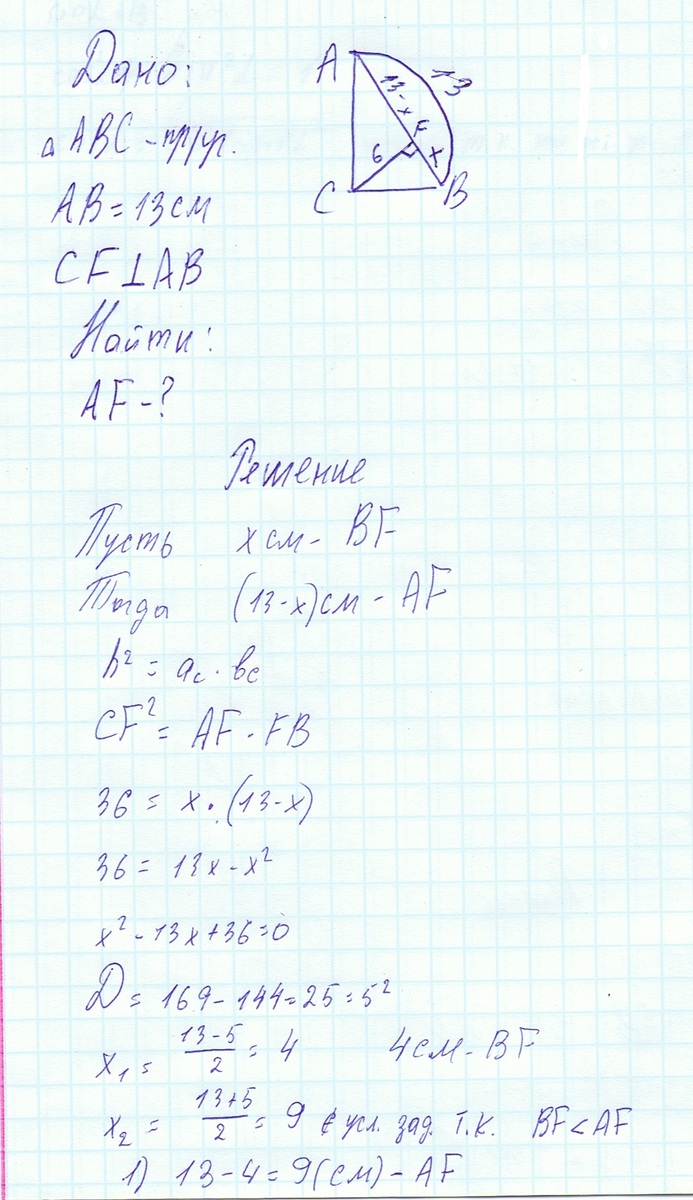 Дано:
△ ABC - пр/уг.
AB = 13 см
CF ⊥ AB
Найти:
AF - ?
A
13
13-x
F
6
x
C
B
Решение
Пусть x см - BF
Тогда (13-x) см - AF
h² = a_c · b_c
CF² = AF · FB
36 = x · (13-x)
36 = 13x - x²
x² - 13x + 36 = 0
D = 169 - 144 = 25 = 5²
x₁ = (13-5)/2 = 4 4 см - BF
x₂ = (13+5)/2 = 9 ∉ усл. зад. т.к. BF < AF
1) 13 - 4 = 9 (см) - AF